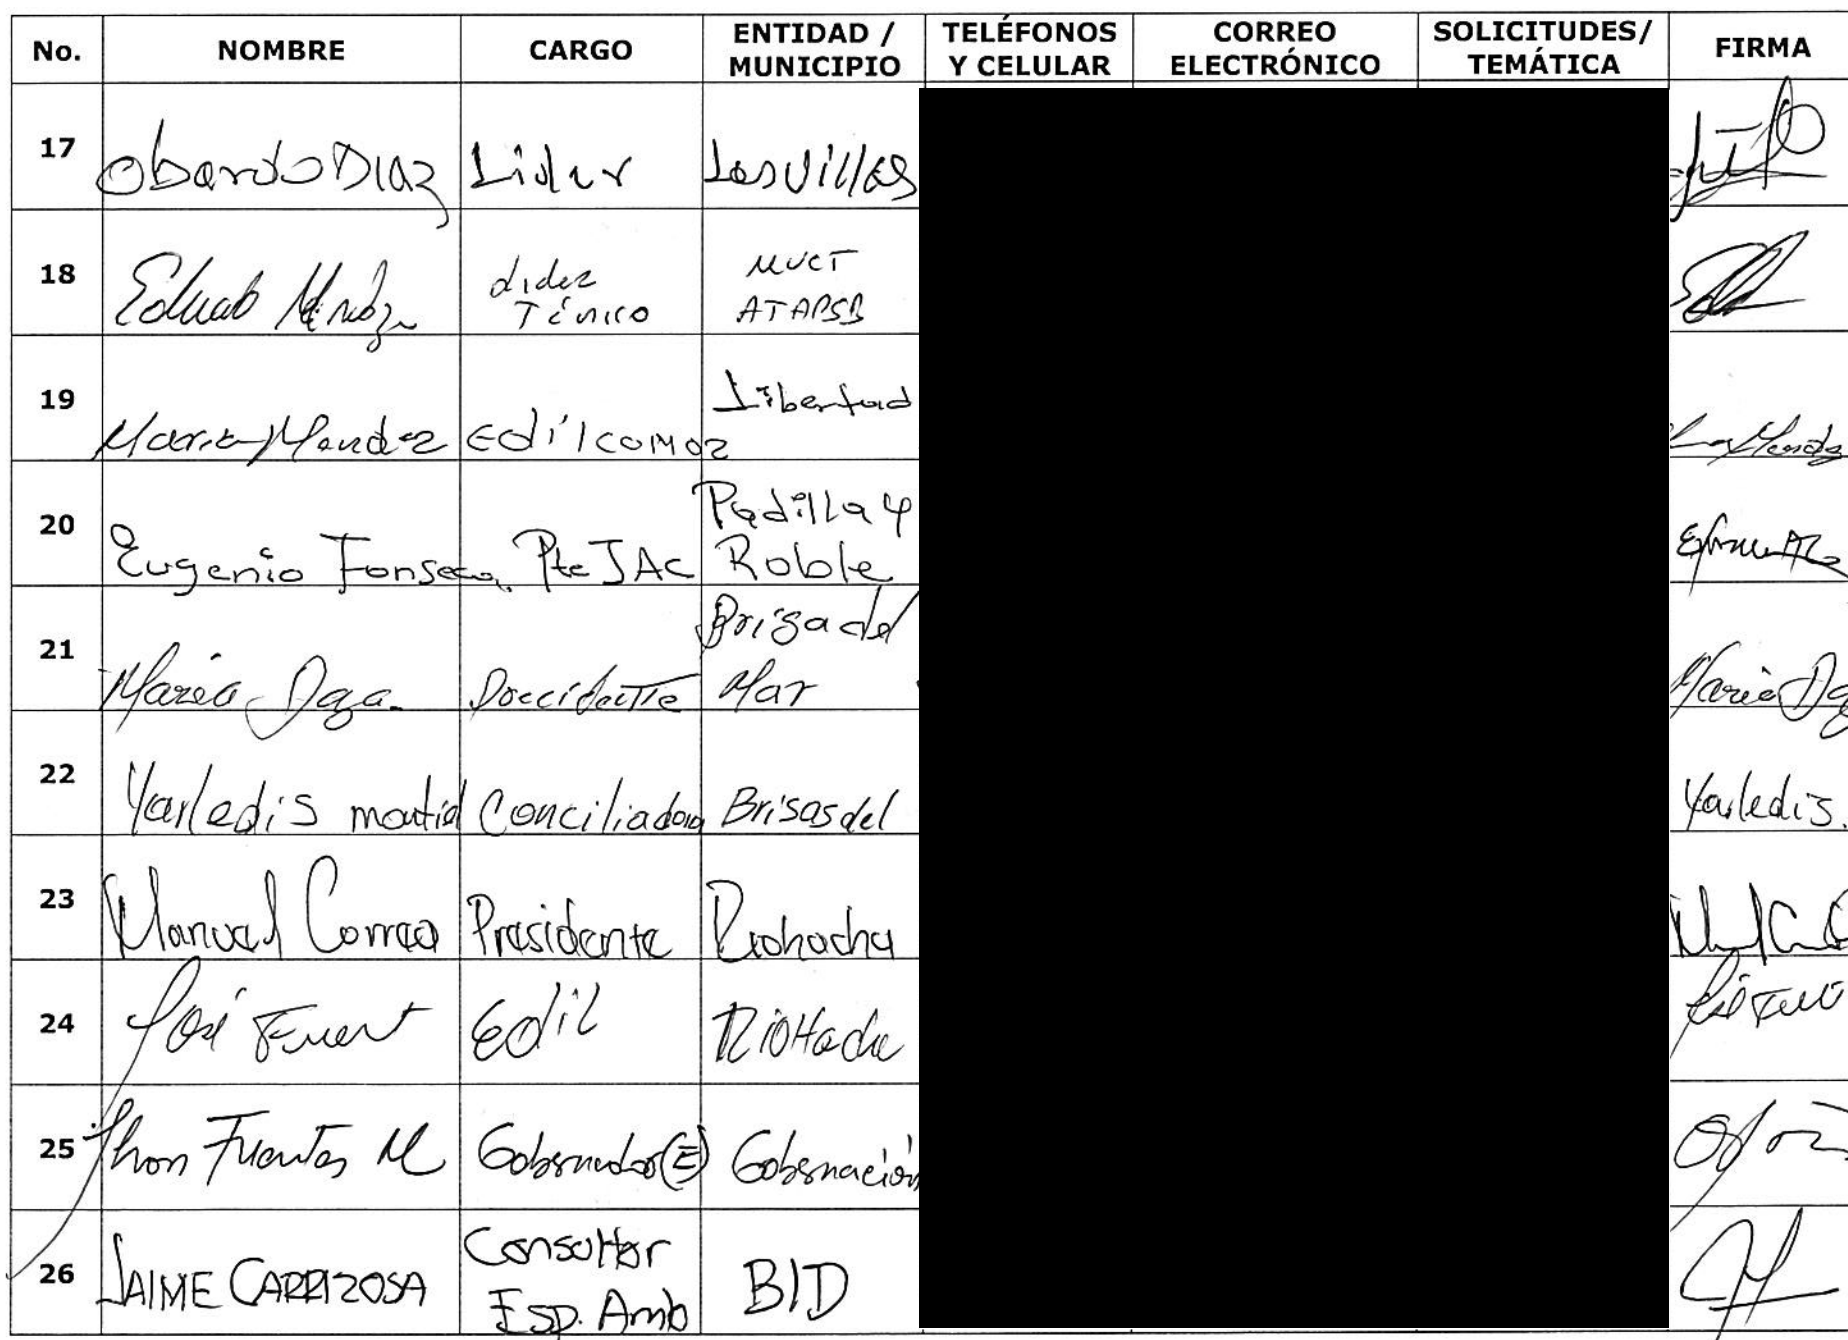 No. NOMBRE CARGO ENTIDAD / MUNICIPIO TELÉFONOS Y CELULAR CORREO ELECTRÓNICO SOLICITUDES/ TEMÁTICA FIRMA
17 Obardo DIAZ Lider Las Villas
18 Eduardo Mendoza Lider Técnico MVCT ATAPSB
19 Maria Mendez Edil comoz Libertad
20 Eugenio Fonseca. Pte JAC Padilla y Roble
21 Maria Daza. Brisa del Mar Maria
22 Yarledis Conciliadora Brisas del Yarledis.
23 Manuel Correa Presidente Riohacha
24 José Edil RioHacha José
25 Jhon Fuentes M Gobernador (E) Gobernación
26 JAIME CARRIZOSA Consultor Esp. Amb BID